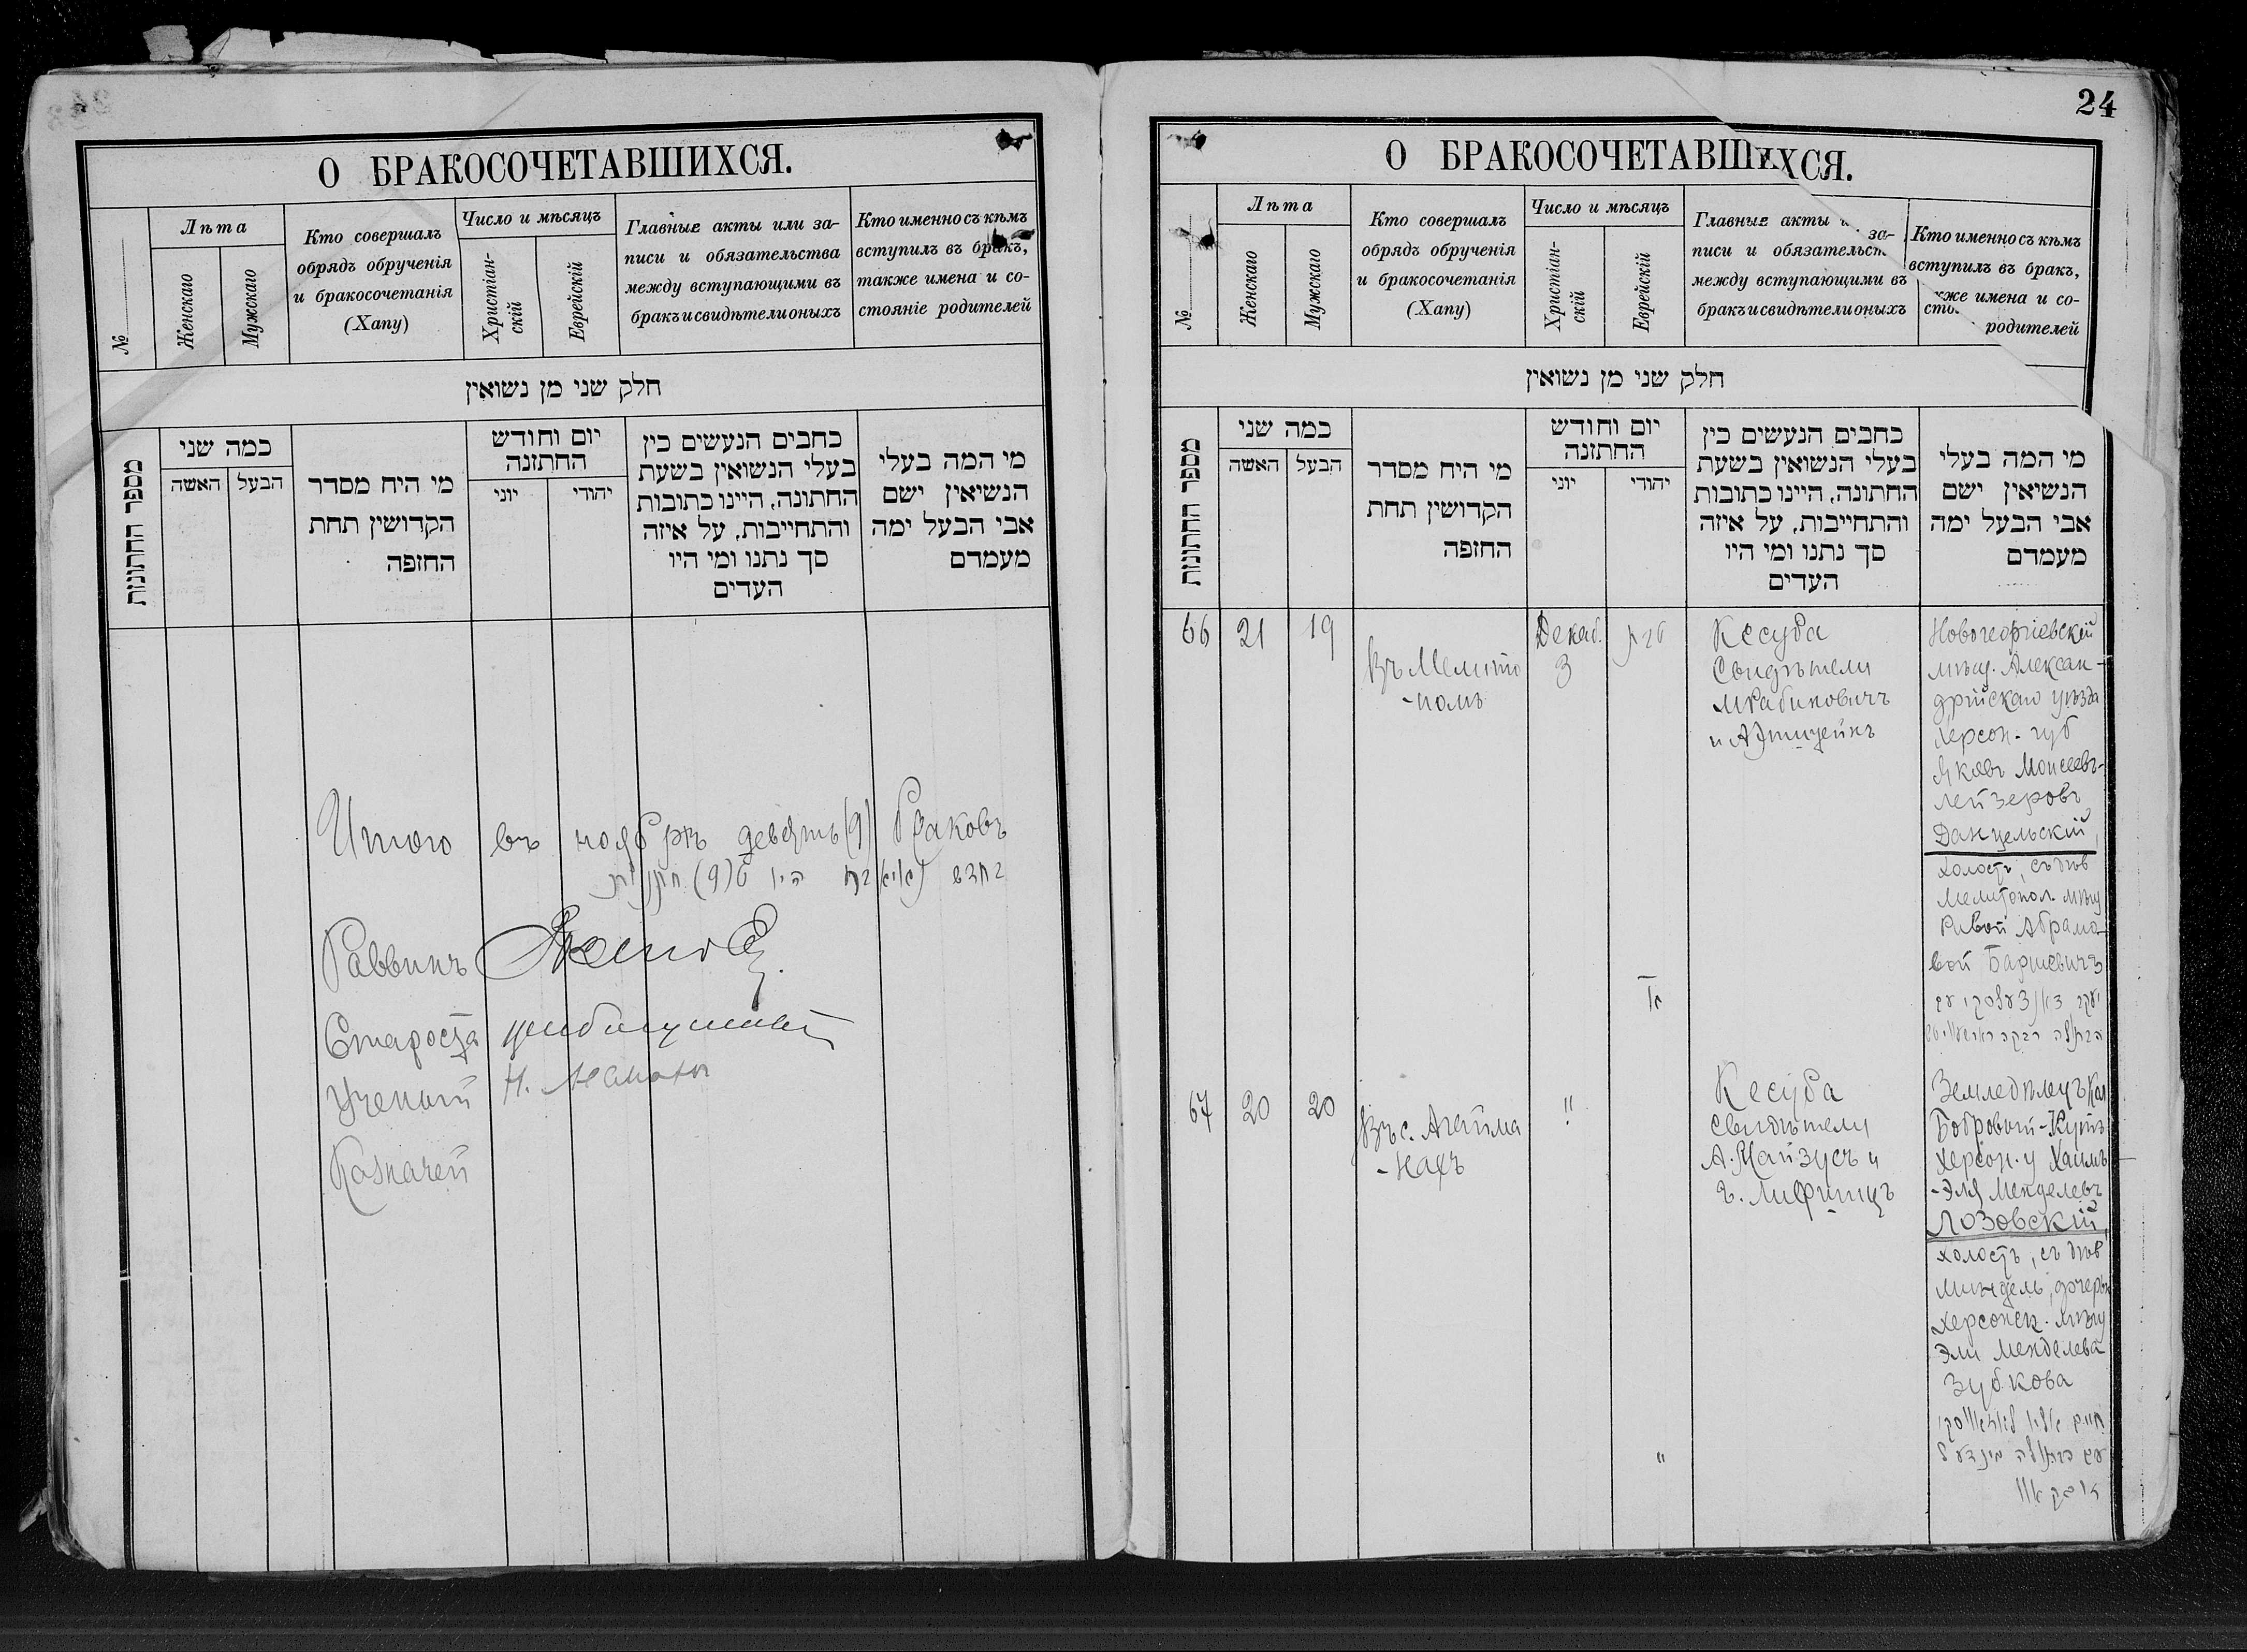 О БРАКОСОЧЕТАВШИХСЯ.
№
Лѣта
Женскаго
Мужскаго
Кто совершалъ
обрядъ обрученія
и бракосочетанія
(Хапу)
Число и мѣсяцъ
Христіан-
скій
Еврейскій
Главные акты или за-
писи и обязательства
между вступающими въ
бракъ и свидѣтели оныхъ
Кто именно съ кѣмъ
вступилъ въ бракъ,
также имена и со-
стояніе родителей
חלק שני מן נשואין
מספר החתונות
כמה שני
האשה
הבעל
מי היח מסדר
הקדושין תחת
החזפה
יום וחודש
החתזנה
יוני
יהודי
כחבים הנעשים כין
בעלי הנשואין בשעת
החתונה, היינו כתובות
והתחייבות, על איזה
סך נתנו ומי היו
העדים
מי המה בעלי
הנשיאין ישם
אבי הבעל ימה
מעמדם
Итого въ ноябрѣ девять (9) браковъ
Раввинъ
Староста
Ученый
Казначей
24
О БРАКОСОЧЕТАВШИХСЯ.
№
Лѣта
Женскаго
Мужскаго
Кто совершалъ
обрядъ обрученія
и бракосочетанія
(Хапу)
Число и мѣсяцъ
Христіан-
скій
Еврейскій
Главные акты и за-
писи и обязательст
между вступающими въ
бракъ и свидѣтели оныхъ
Кто именно съ кѣмъ
вступилъ въ бракъ,
кже имена и со-
сто родителей
חלק שני מן נשואין
מספר החתונות
כמה שני
האשה
הבעל
מי היח מסדר
הקדושין תחת
החזפה
יום וחודש
החתזנה
יוני
יהודי
כחבים הנעשים כין
בעלי הנשואין בשעת
החתונה, היינו כתובות
והתחייבות, על איזה
סך נתנו ומי היו
העדים
מי המה בעלי
הנשיאין ישם
אבי הבעל ימה
מעמדם
66
21
19
Въ Мелито
-полѣ
Декаб.
3
Кесуба
Свидѣтели
М Рабиновичъ
и А Этштейнъ
Новогеоргіевскій
мѣщ. Алексан-
дрійскаго уѣзда
Херсон. губ
Яковъ Моисеевъ-
Лейзеровъ
Данцельскій,
холостъ, съ дѣв
Мелитопол. мѣщ
Ривой Абрамо-
вой
67
20
20
Въ с. Агайма
-нахъ
"
"
Кесуба
свидѣтели
А. Майзусъ и
Лифшицъ
Земледѣлецъ Кол
Бобровый-Кутъ
Херсон. у Хаимъ
-Эля Менделевъ
Лозовскій,
холостъ, съ дѣв
Миндель, дчерью
Херсонск. мѣщ
Эли Менделева
Зубкова